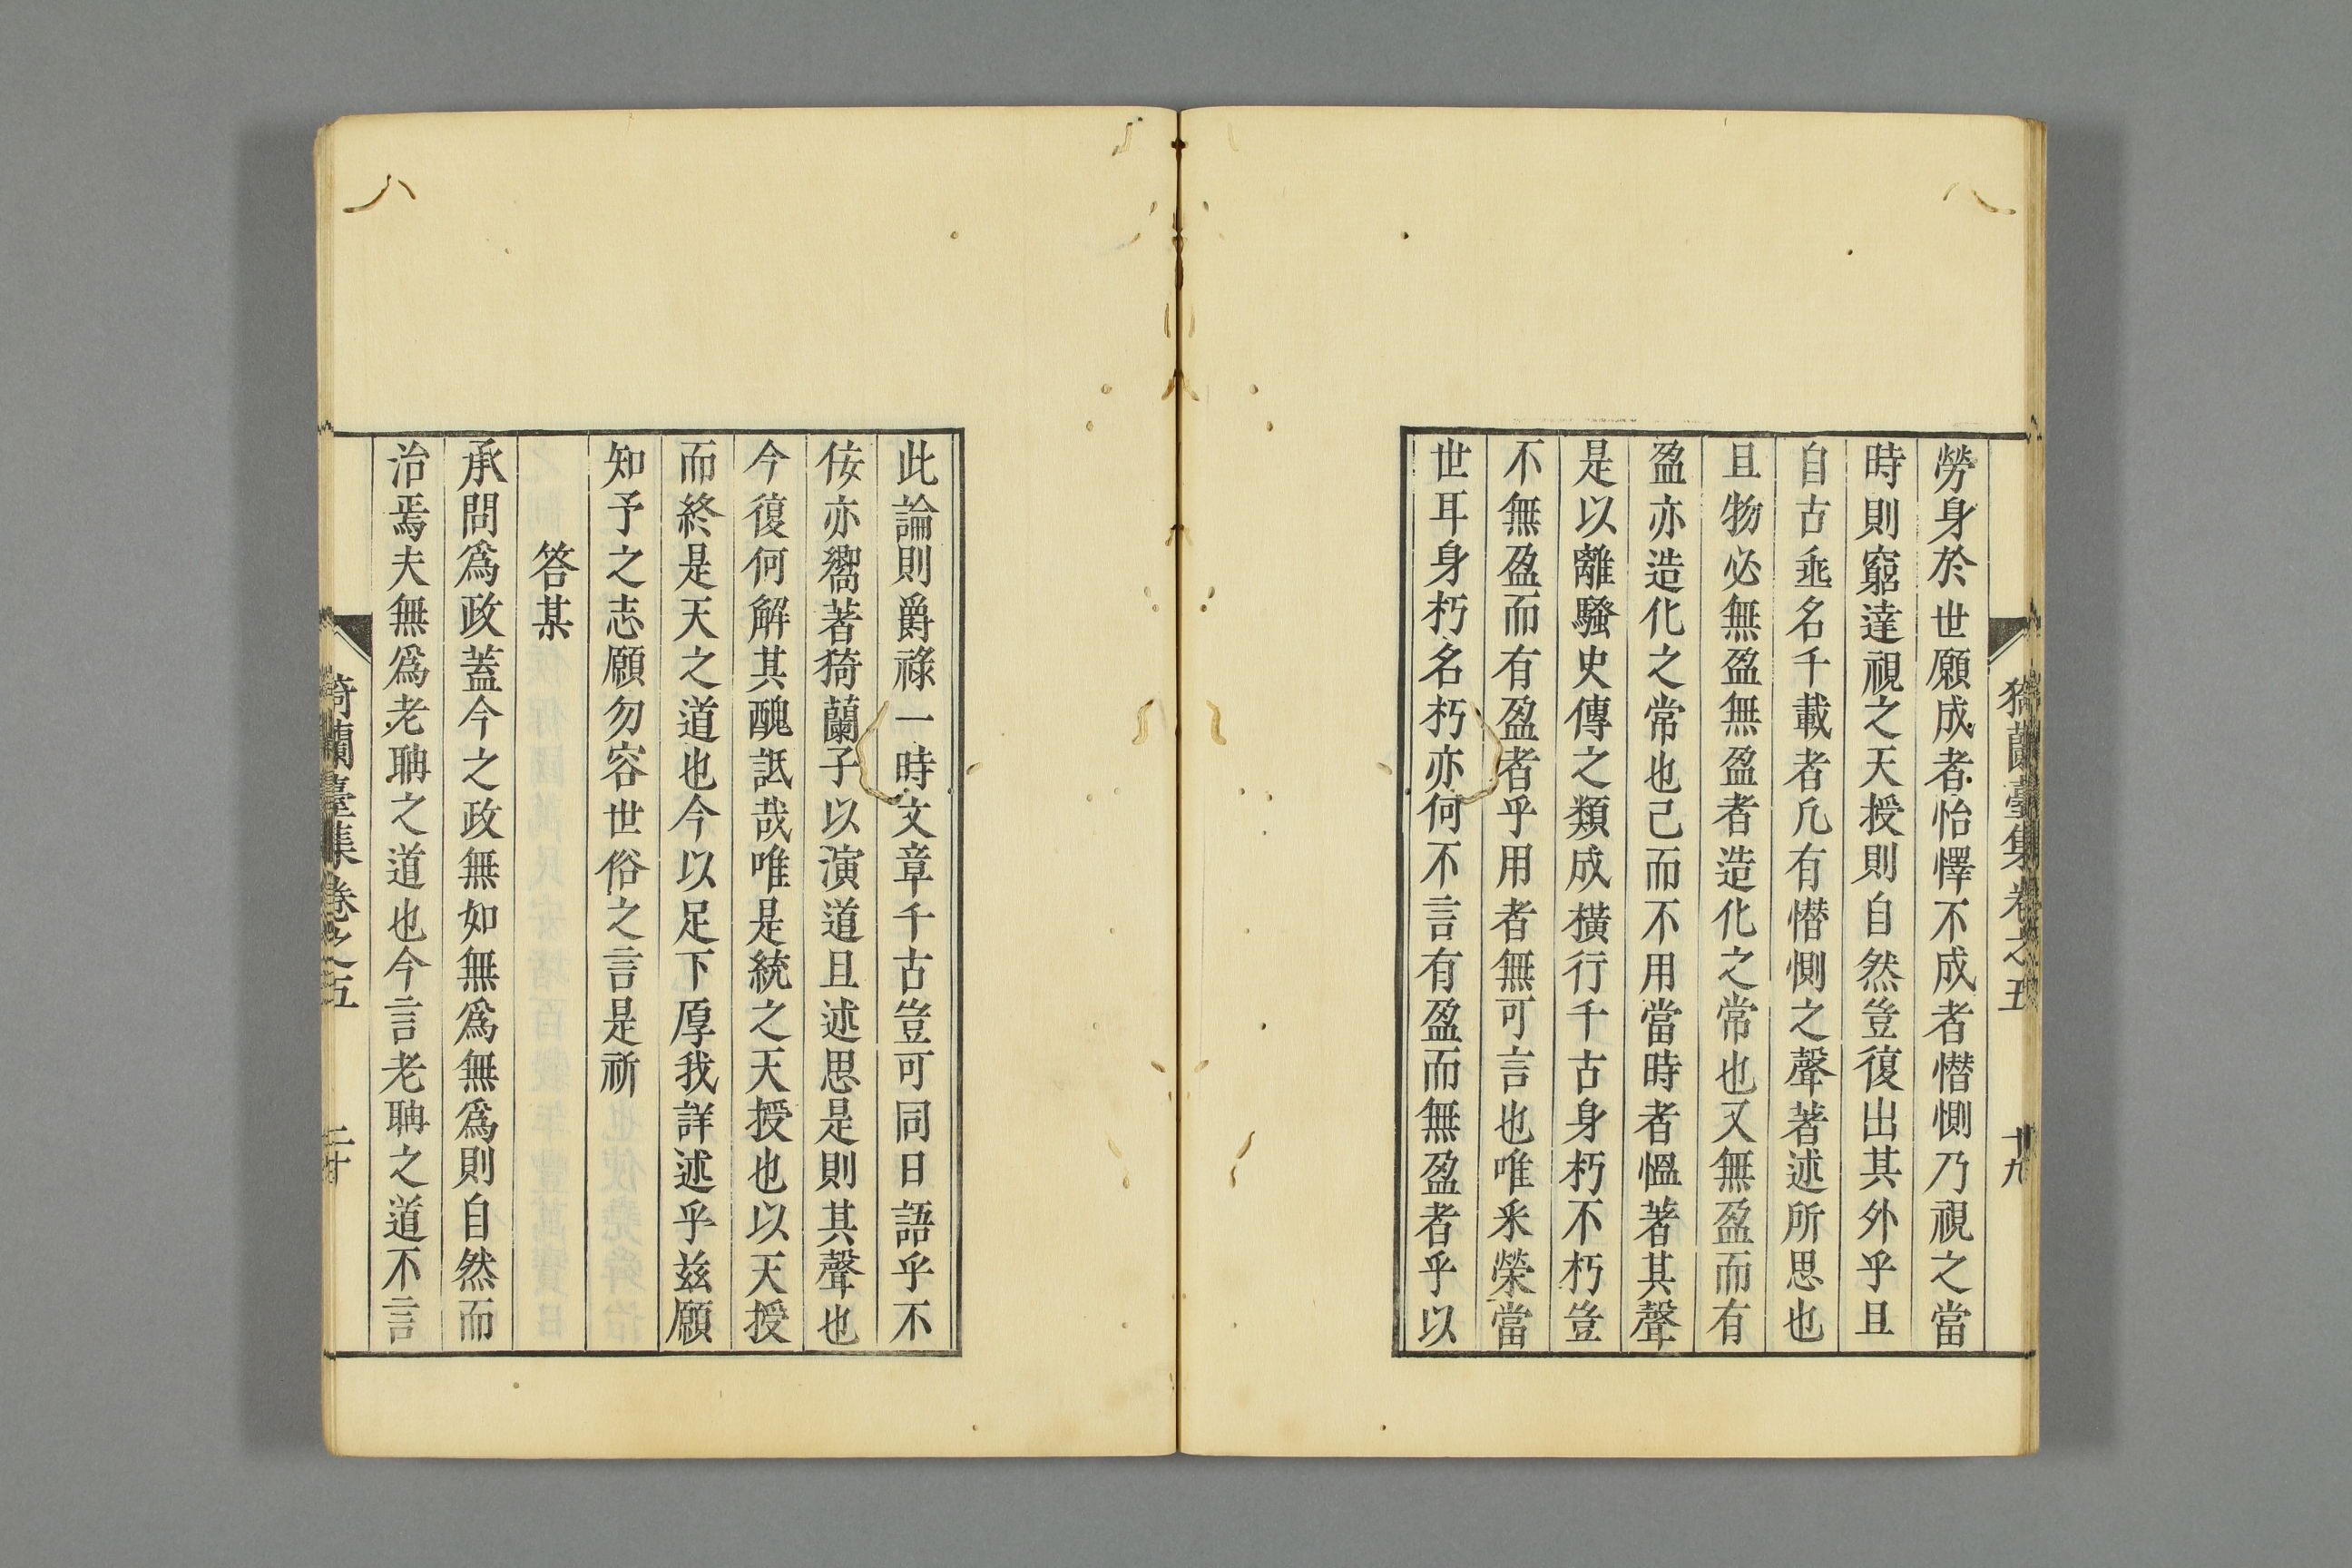 猗蘭臺集卷之五
十九
勞身於世願成者怡懌不成者憯惻乃視之當
時則窮達視之天授則自然豈復出其外乎且
自古垂名千載者凢有憯惻之聲著述所思也
且物必無盈無盈者造化之常也又無盈而有
盈亦造化之常也己而不用當時者慍著其聲
是以離騷史傳之類成橫行千古身朽不朽豈
不無盈而有盈者乎用者無可言也唯釆榮當
世耳身朽名朽亦何不言有盈而無盈者乎以
此論則爵祿一時文章千古豈可同日語乎不
侒亦嚮著猗蘭子以演道且述思是則其聲也
今復何解其醜詆哉唯是統之天授也以天授
而終是天之道也今以足下厚我詳述乎兹願
知予之志願勿容世俗之言是祈
答某
承問爲政蓋今之政無如無爲無爲則自然而
治焉夫無爲老聃之道也今言老聃之道不言
猗蘭臺集卷之五
二十